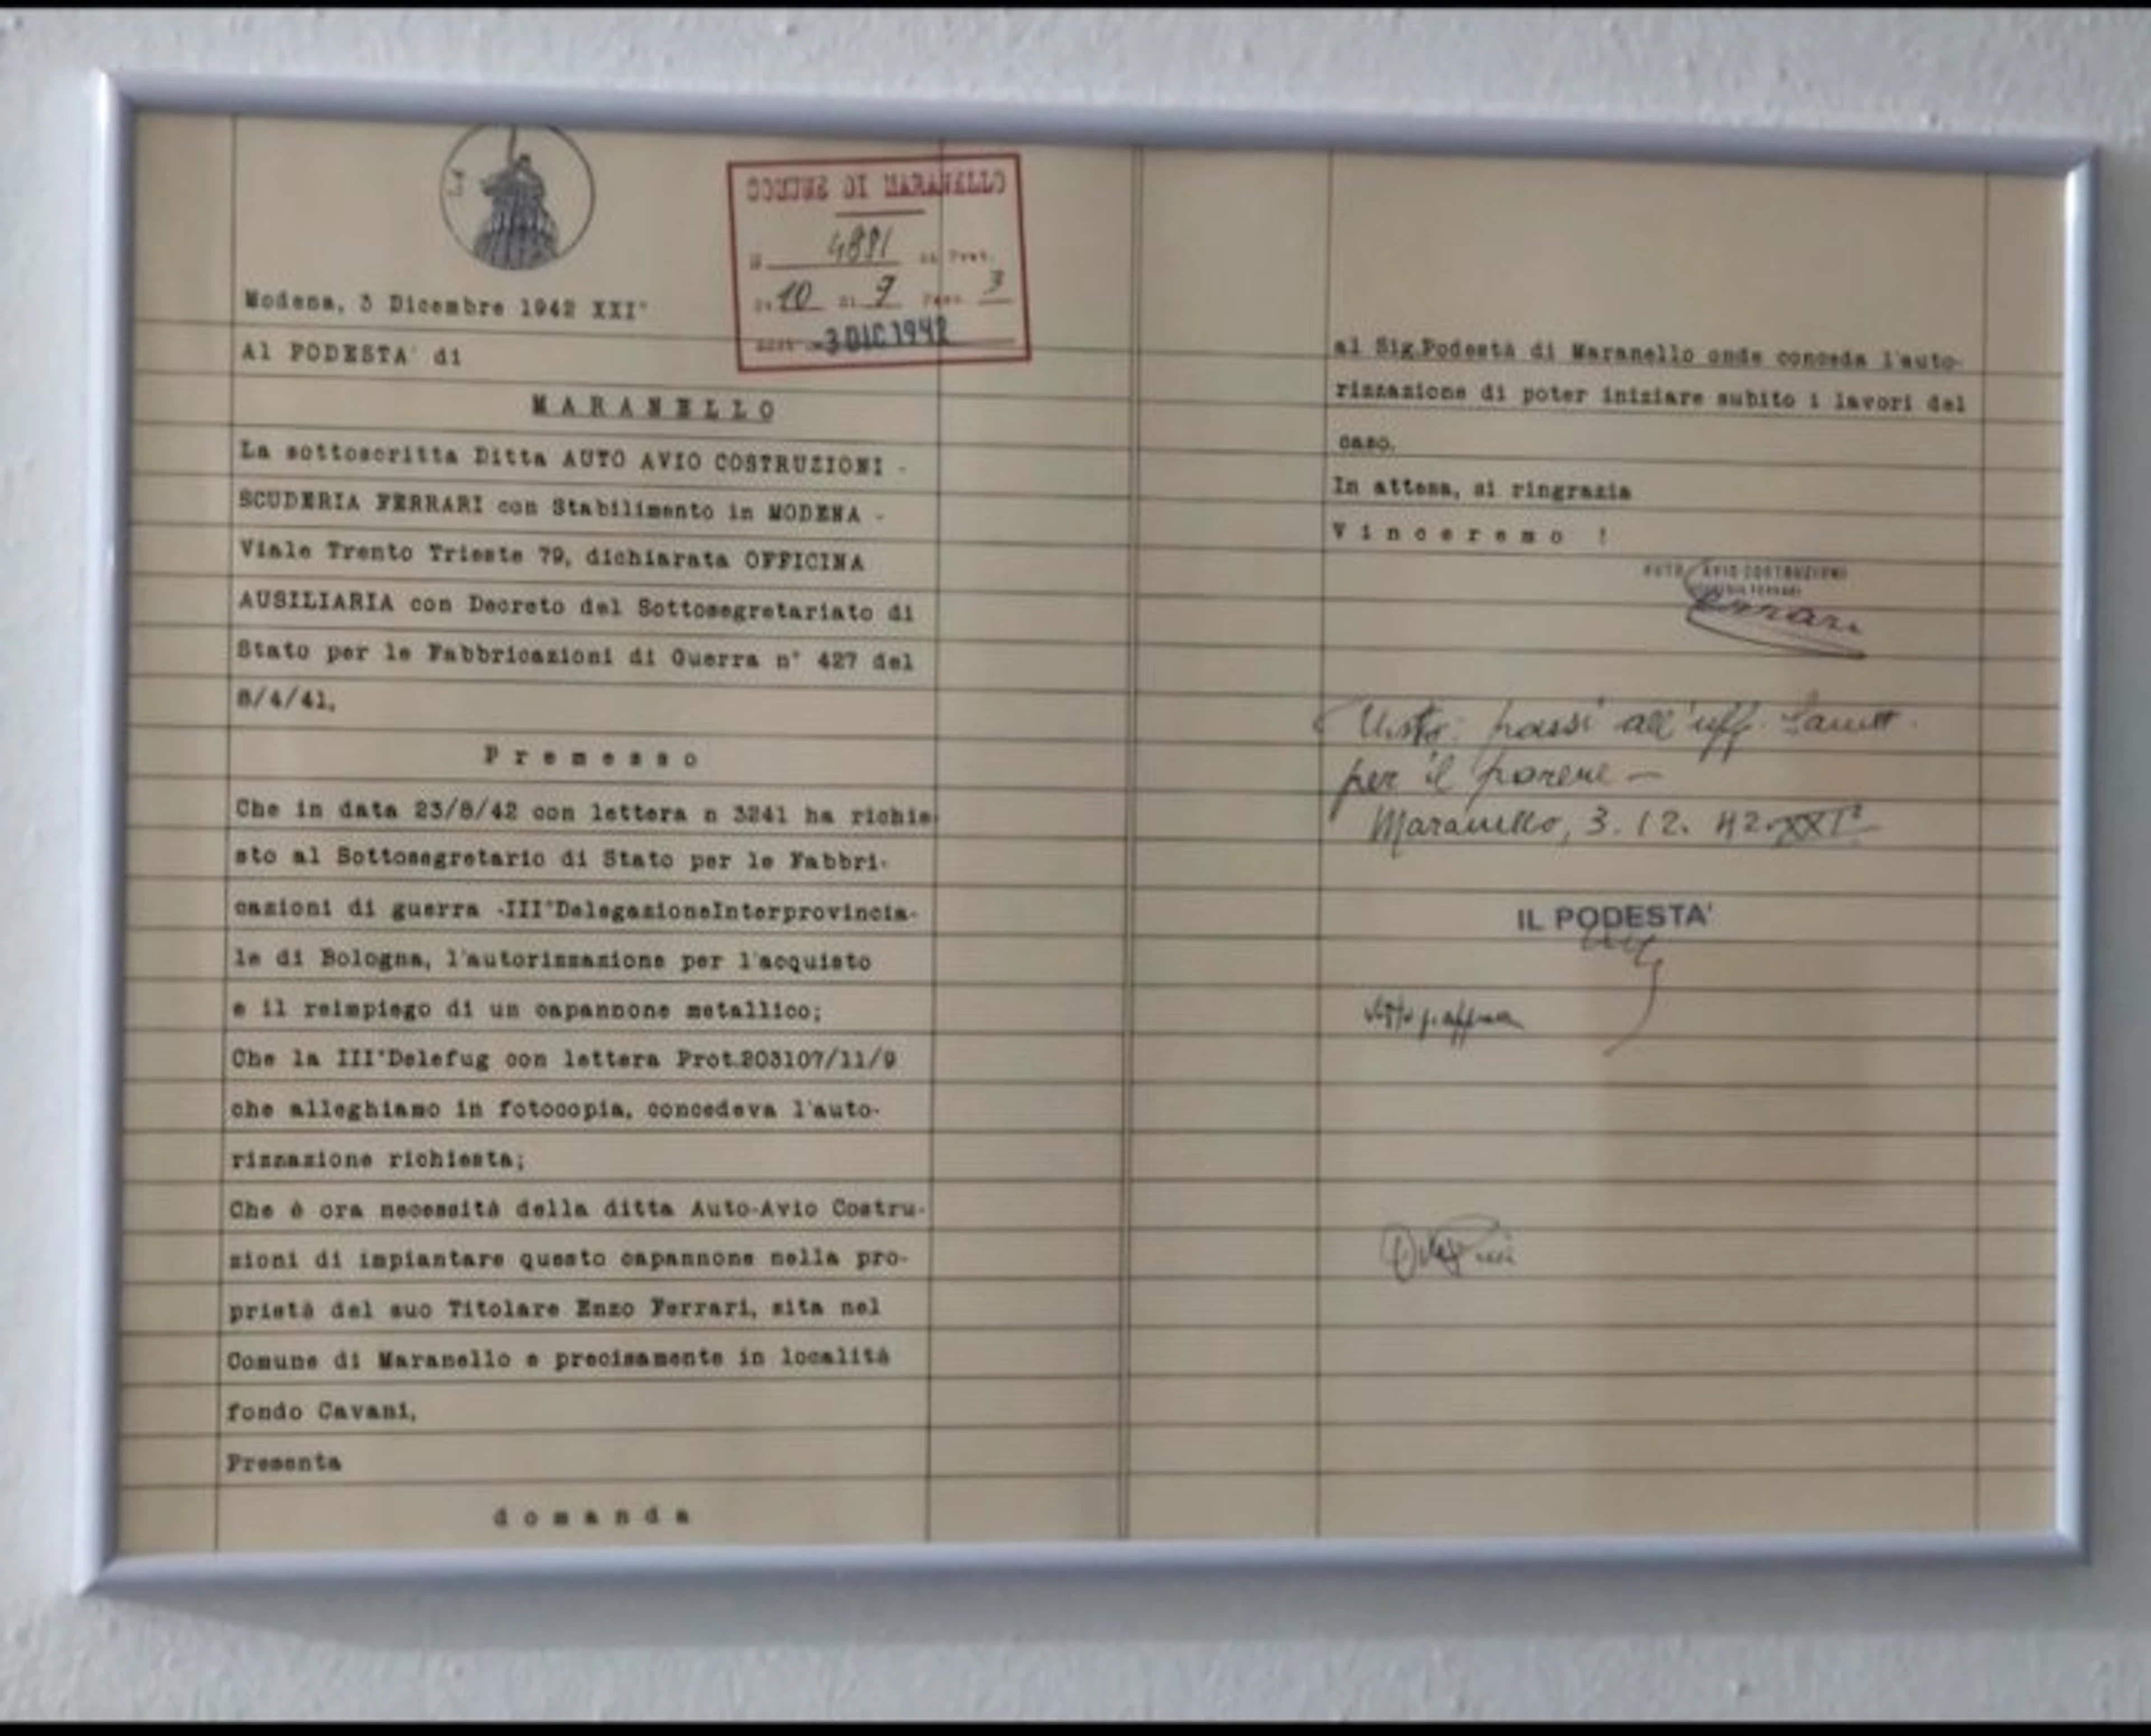 COMUNE DI MARANELLO
N 4881 di Prot.
Ca 10 Cl 9 Fasc. 3
-3 DIC 1942
Modena, 3 Dicembre 1942 XXI°
Al PODESTA' di
MARANELLO
La sottoscritta Ditta AUTO AVIO COSTRUZIONI -
SCUDERIA FERRARI con Stabilimento in MODENA -
Viale Trento Trieste 79, dichiarata OFFICINA
AUSILIARIA con Decreto del Sottosegretariato di
Stato per le Fabbricazioni di Guerra n° 427 del
8/4/41,
Premesso
Che in data 23/8/42 con lettera n 3241 ha richie
sto al Sottosegretario di Stato per le Fabbri-
cazioni di guerra -III°DelegazioneInterprovincia-
le di Bologna, l'autorizzazione per l'acquisto
e il reimpiego di un capannone metallico;
Che la III°Delefug con lettera Prot.203107/11/9
che alleghiamo in fotocopia, concedeva l'auto-
rizzazione richiesta;
Che è ora necessità della ditta Auto-Avio Costru-
zioni di impiantare questo capannone nella pro-
prietà del suo Titolare Enzo Ferrari, sita nel
Comune di Maranello e precisamente in località
fondo Cavani,
Presenta
domanda
al Sig.Podestà di Maranello onde conceda l'auto-
rizzazione di poter iniziare subito i lavori del
caso.
In attesa, si ringrazia
Vinceremo !
AUTO AVIO COSTRUZIONI
SCUDERIA FERRARI
Ferrari
Visto: passi all'uff.
per il parere -
Maranello, 3.12.42.XXI°
IL PODESTA'